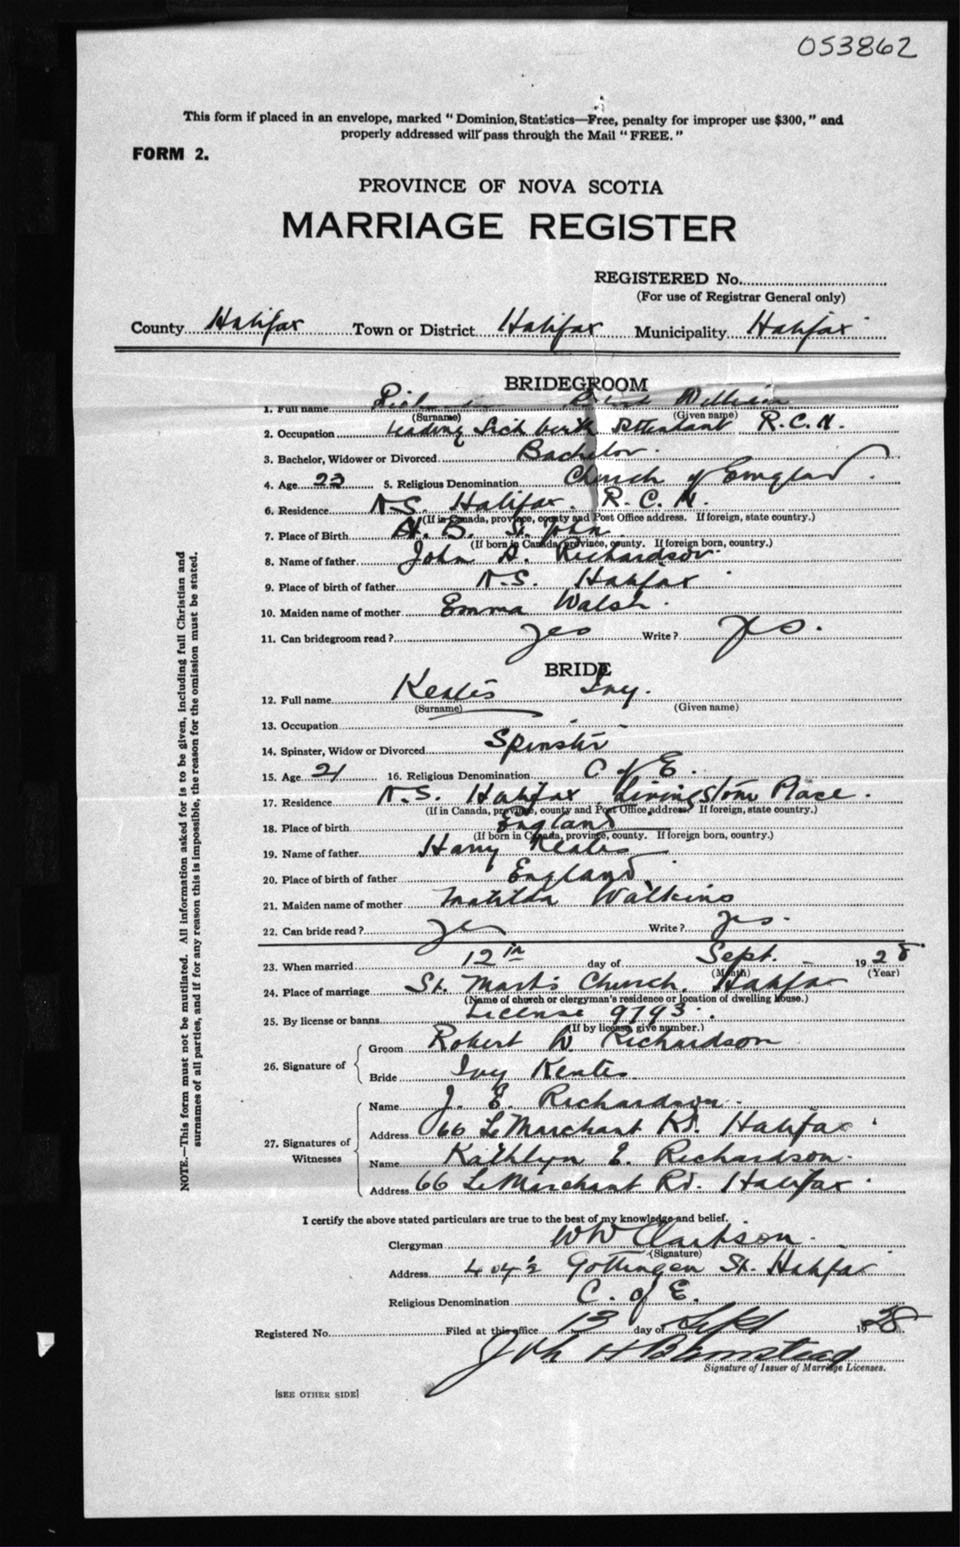 053862
This form if placed in an envelope, marked "Dominion, Statistics—Free, penalty for improper use $300," and
properly addressed will pass through the Mail "FREE."
FORM 2.
PROVINCE OF NOVA SCOTIA
MARRIAGE REGISTER
REGISTERED No.
(For use of Registrar General only)
County Halifax Town or District Halifax Municipality Halifax
BRIDEGROOM
1. Full name William
(Surname) (Given name)
2. Occupation Leading Sick berth Attendant R.C.N.
3. Bachelor, Widower or Divorced Bachelor.
4. Age 22 5. Religious Denomination Church of England.
6. Residence N.S. Halifax. R.C.N.
(If in Canada, province, county and Post Office address. If foreign, state country.)
7. Place of Birth N.B. St. John
(If born in Canada, province, county. If foreign born, country.)
8. Name of father John A. Richardson.
9. Place of birth of father N.S. Halifax
10. Maiden name of mother Emma Walsh.
11. Can bridegroom read? yes Write? yes.
BRIDE
12. Full name Keates Ivy.
(Surname) (Given name)
13. Occupation
14. Spinster, Widow or Divorced Spinster
15. Age 21 16. Religious Denomination C of E.
17. Residence N.S. Halifax Livingstone Place.
(If in Canada, province, county and Post Office, address. If foreign, state country.)
18. Place of birth England
(If born in Canada, province, county. If foreign born, country.)
19. Name of father Harry Keates
20. Place of birth of father England.
21. Maiden name of mother Matilda Watkins
22. Can bride read? yes Write? yes.
23. When married 12th day of Sept. 1928
(Month) (Year)
24. Place of marriage St. Mark's Church. Halifax
(Name of church or clergyman's residence or location of dwelling house.)
25. By license or banns License 9793.
(If by license, give number.)
26. Signature of
Groom Robert W Richardson
Bride Ivy Keates
27. Signatures of Witnesses
Name J. E. Richardson.
Address 66 LeMarchant Rd. Halifax
Name Kathlyn E. Richardson.
Address 66 LeMarchant Rd. Halifax.
I certify the above stated particulars are true to the best of my knowledge and belief.
Clergyman WW Clarkson.
(Signature)
Address 404½ Gottingen St. Halifax
Religious Denomination C. of E.
Registered No. Filed at this office 13 day of Sept 1928
Signature of Issuer of Marriage Licenses.
[SEE OTHER SIDE]
NOTE.—This form must not be mutilated. All information asked for is to be given, including full Christian and
surnames of all parties, and if for any reason this is impossible, the reason for the omission must be stated.